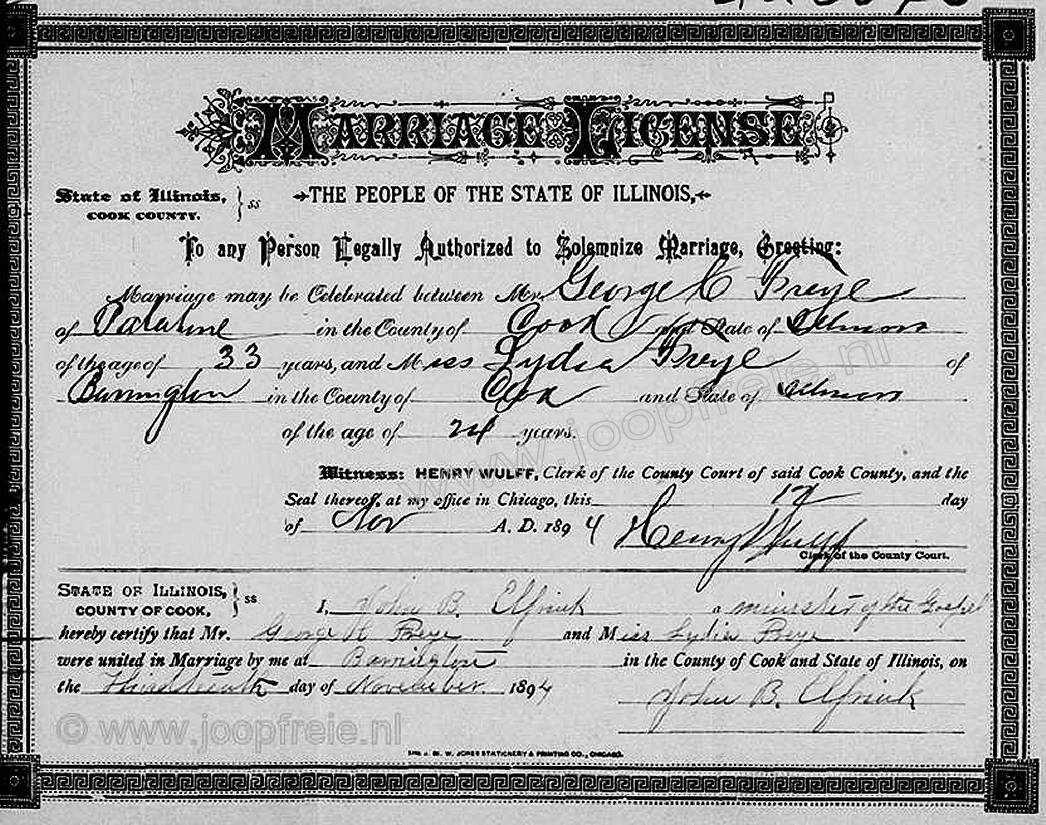 MARRIAGE LICENSE
State of Illinois, COOK COUNTY. } ss THE PEOPLE OF THE STATE OF ILLINOIS,
To any Person Legally Authorized to Solemnize Marriage, Greeting:
Marriage may be Celebrated between Mr. George H Freye
of Palatine in the County of Cook and State of Illinois
of the age of 33 years, and Miss Lydia Freye of
Barrington in the County of Cook and State of Illinois
of the age of 24 years.
Witness: HENRY WULFF, Clerk of the County Court of said Cook County, and the
Seal thereof, at my office in Chicago, this 12 day
of Nov A. D. 1894 Henry Wulff
Clerk of the County Court.
STATE OF ILLINOIS, COUNTY OF COOK, } ss I, John B. Elfrink a minister of the Gospel
hereby certify that Mr. George H Freye and Miss Lydia Freye
were united in Marriage by me at Barrington in the County of Cook and State of Illinois, on
the Thirteenth day of November 1894 John B. Elfrink
© www.joopfreie.nl
www.joopfreie.nl
THE J. M. W. JONES STATIONERY & PRINTING CO., CHICAGO.